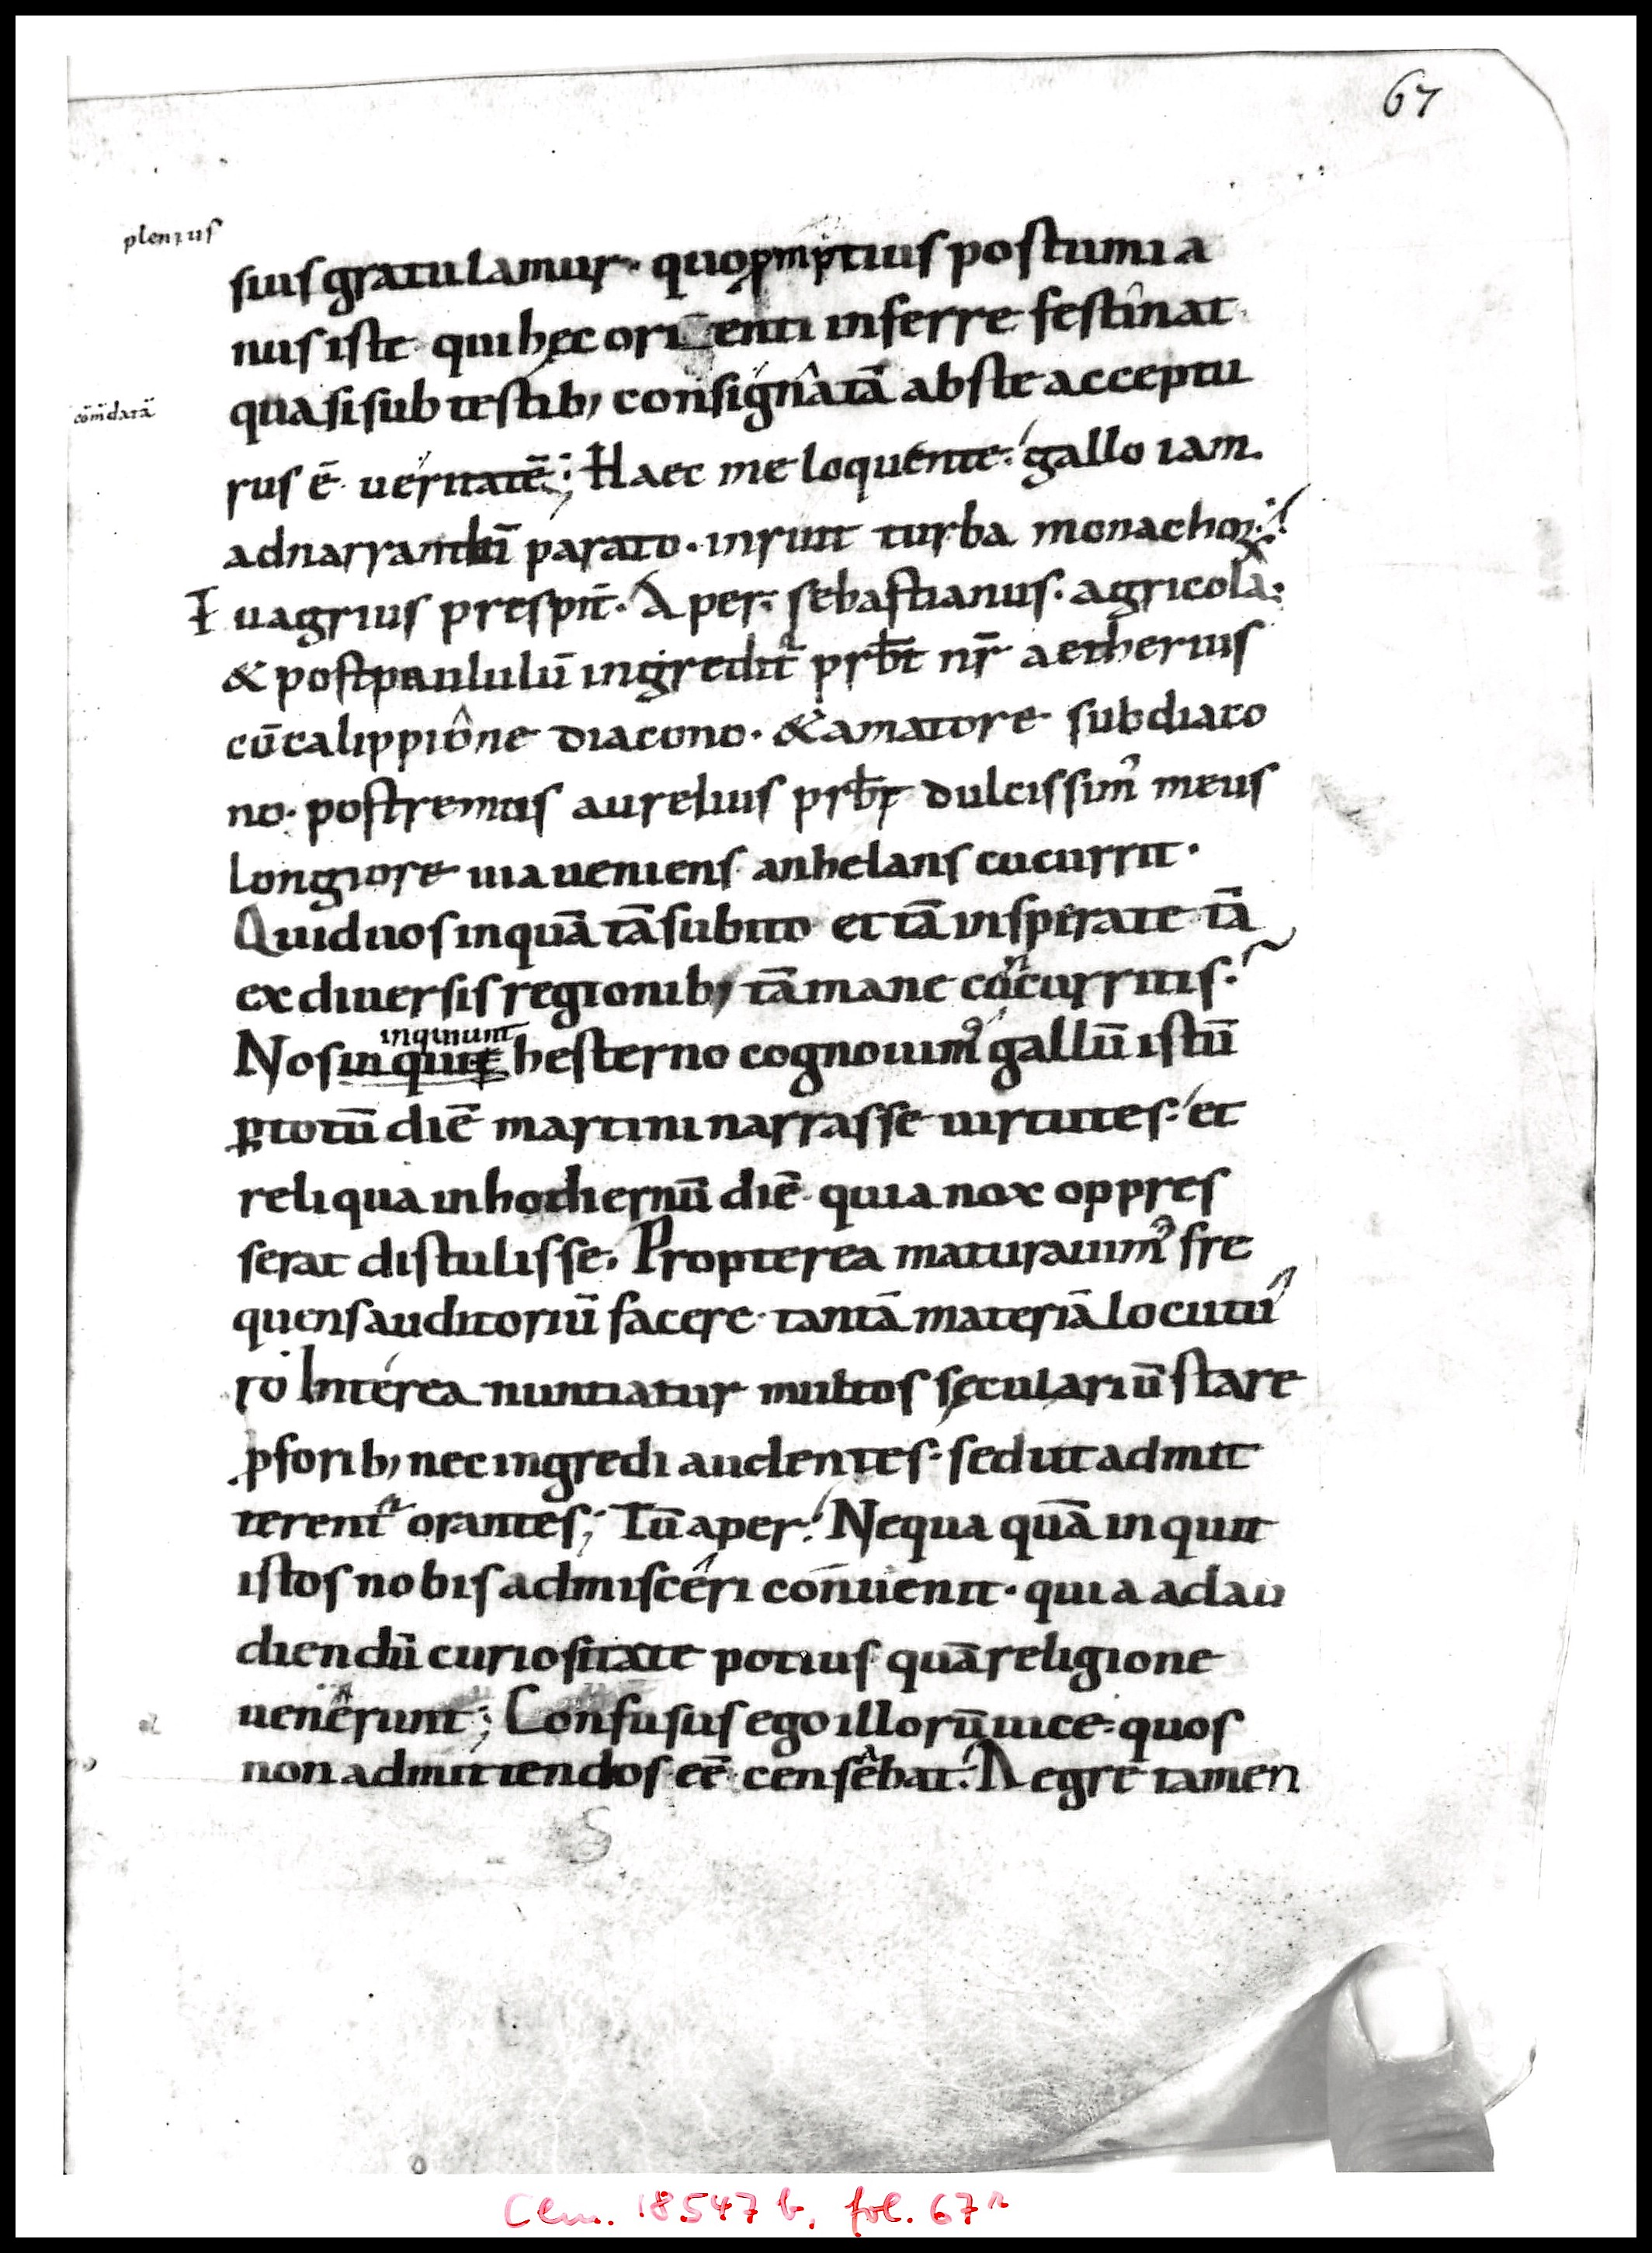 67
plenius
suis gratulamur· quo ꝓmptius postumia
nus iste qui hęc orienti inferre festinat
quasi sub testib; consignatā abs te acceptu
cōmdatā
rus ē ueritatē; Haec me loquente· gallo iam
ad narrandū parato· inruit turba monachoꝝ·
Euagrius prespit̄· Aper· sebastianus· agricola:
& post paululū ingredit̄ prb̄t nr̄ aetherius
cū calippione diacono· & amatore subdiaco
no· postremus aurelius prb̄r dulcissim᾿ meus
longiore uia ueniens anhelans cucurrit·
Quid uos inquā tā subito et tā insperate tā
ex diuersis regionib; tā mane cōcurritis·
inquiunt
Nos inquit hesterno cognouim᾿ gallū istū
ꝑ totū diē martini narrasse uirtutes· et
reliqua in hodiernū diē quia nox oppres
serat distulisse· Propterea maturauim᾿ fre
quens auditoriū facere· tantā materiā locutu
ro Interea nuntiatur multos seculariū stare
ꝓ forib; nec ingredi audentes· sed ut admit
terent᾿ orantes; Tū aper· Nequa quā inquit
istos nobis admisceri conuenit· quia ad au
diendū curiositate potius quā religione
uenerunt; Confusus ego illorū uice· quos
non admittendos eē censebat· Aegre tamen
Clm. 18547 b, fol. 67r